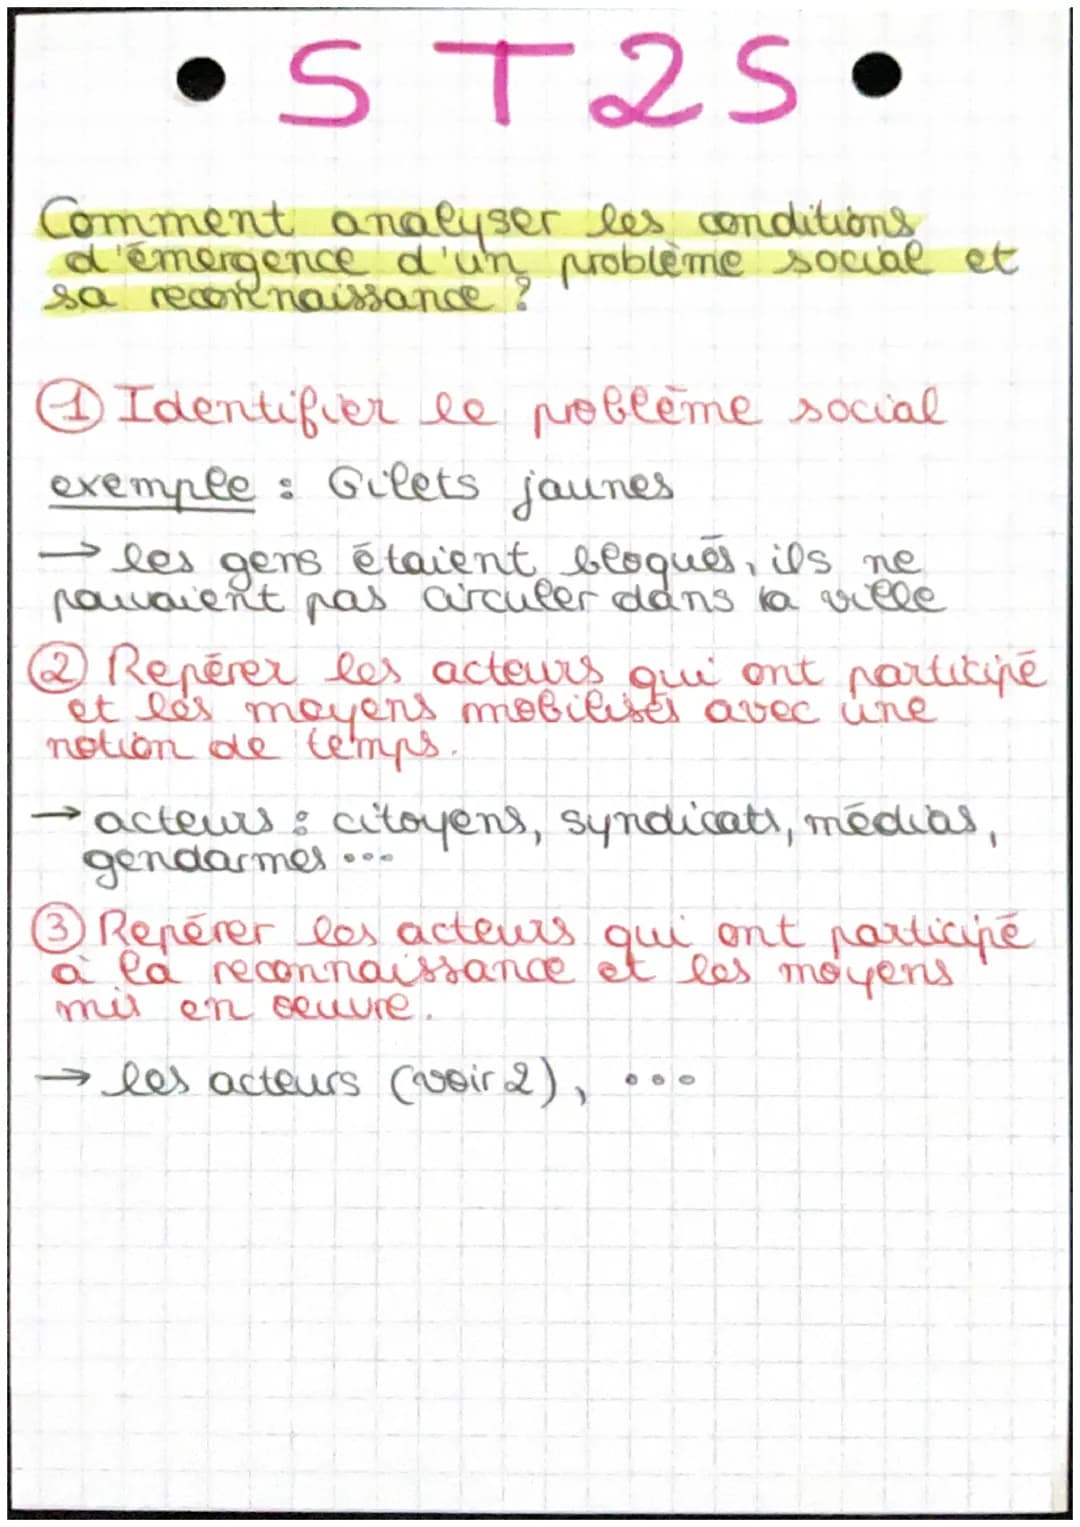 • ST2S •
Comment analyser les conditions
d'émergence d'un problème social et
sa reconnaissance ?
① Identifier le problème social
exemple : Gilets jaunes
→ les gens étaient bloqués, ils ne
pouvaient pas circuler dans la ville
② Repérer les acteurs qui ont participé
et les moyens mobilisés avec une
notion de temps.
→ acteurs : citoyens, syndicats, médias,
gendarmes ...
③ Repérer les acteurs qui ont participé
à la reconnaissance et les moyens
mis en oeuvre.
→ les acteurs (voir 2), ...